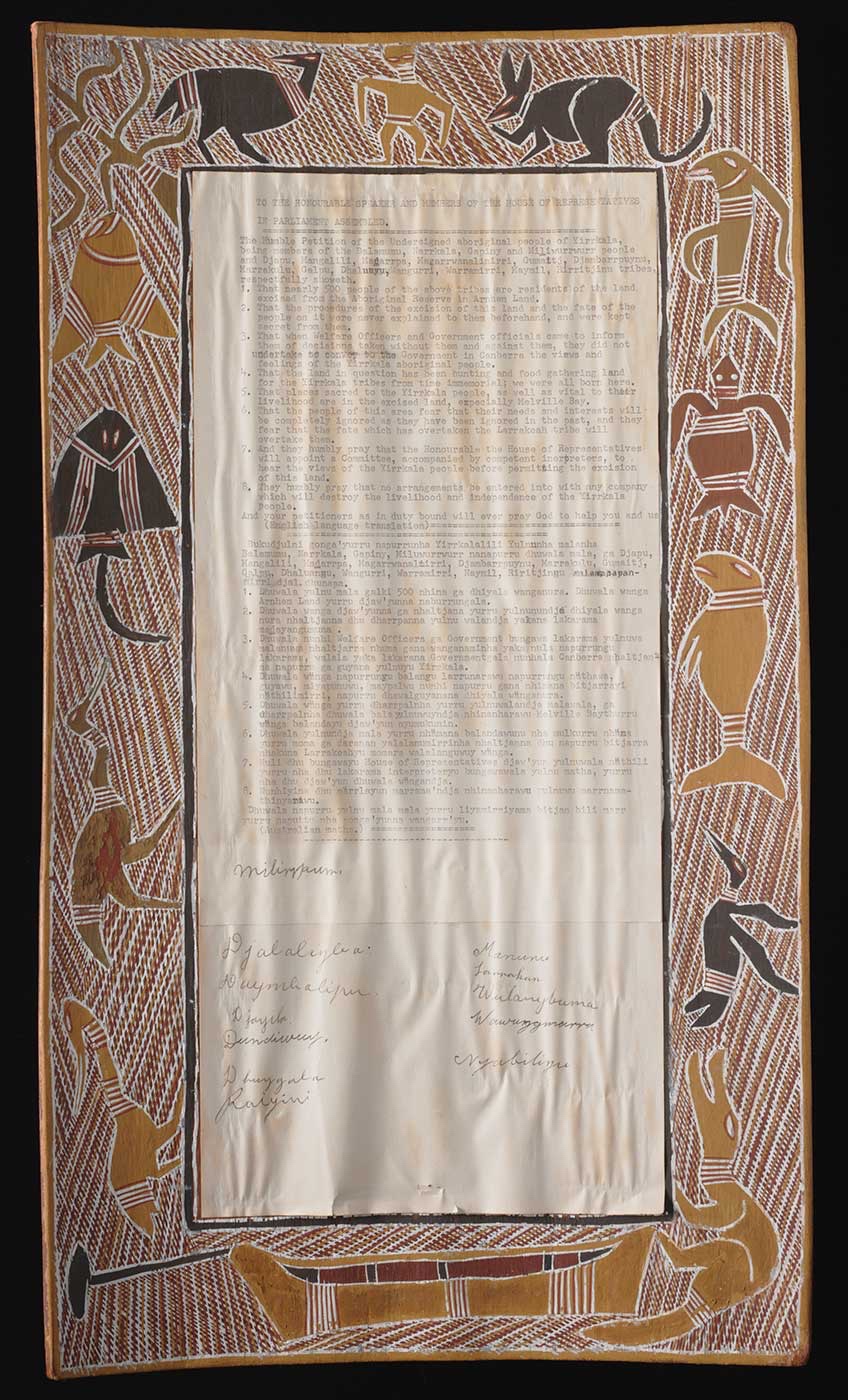 TO THE HONOURABLE SPEAKER AND MEMBERS OF THE HOUSE OF REPRESENTATIVES
IN PARLIAMENT ASSEMBLED.
The Humble Petition of the Undersigned aboriginal people of Yirrkala,
being members of the Balamumu, Narrkala, Gapiny and Miliwurrwurr people
and Djapu, Mangalili, Madarrpa, Magarrwanalinirri, Gumaitj, Djambarrpuynu,
Marrakulu, Galpu, Dhaluayu, Wangurri, Warramirri, Maymil, Rirritjinu tribes,
respectfully showeth.
1. That nearly 500 people of the above tribes are residents of the land
excised from the Aboriginal Reserve in Arnhem Land.
2. That the procedures of the excision of this land and the fate of the
people on it were never explained to them beforehand, and were kept
secret from them.
3. That when Welfare Officers and Government officials came to inform
them of decisions taken without them and against them, they did not
undertake to convey to the Government in Canberra the views and
feelings of the Yirrkala aboriginal people.
4. That the land in question has been hunting and food gathering land
for the Yirrkala tribes from time immemorial; we were all born here.
5. That places sacred to the Yirrkala people, as well as vital to their
livelihood are in the excised land, especially Melville Bay.
6. That the people of this area fear that their needs and interests will
be completely ignored as they have been ignored in the past, and they
fear that the fate which has overtaken the Larrakeah tribe will
overtake them.
7. And they humbly pray that the Honourable the House of Representatives
will appoint a Committee, accompanied by competent interpreters, to
hear the views of the Yirrkala people before permitting the excision
of this land.
8. They humbly pray that no arrangements be entered into with any company
which will destroy the livelihood and independence of the Yirrkala
people.
And your petitioners as in duty bound will ever pray God to help you and us
(English language translation)
Bukudjulni gonga'yurru napurrunha Yirrkalalili Yulnunha malanha
Balamumu, Narrkala, Gapiny, Miliwurrwurr nanapurru dhuwala mala, ga Djapu,
Mangalili, Madarrpa, Magarrwanalinirri, Djambarrpuynu, Marrakulu, Gumaitj,
Galpu, Dhaluangu, Wangurri, Warramirri, Naymil, Riritjingu
djal dhunapa.
1. Dhuwala yulnu mala galki 500 nhina ga dhiyala wanganura. Dhuwala wanga
Arnhem Land yurru djaw'yunna naburrungala.
2. Dhuwala wanga djaw'yunna ga nhaltjana yurru yulnunundja dhiyala wanga
nura nhaltjanna dhu dharrpanna yulnu walandja yakana lakarama
madayangumuna.
3. Dhuwala nunhi Welfare Officers ga Government bungawa lakarama yulnuwa
malanuwa nhaltjarra nhuma gana wanganaminha yaka nula napurrungu
lakarama, walala yaka lakarama Governmentgala nunhala Canberra nhaltjan
ga napurru ga guyana yulnuyu Yirrkala.
4. Dhuwala wanga napurrungu balangu larrunarawu napurrungu nathawa,
guyawu, miyapunuwu, maypalwu nunhi napurru gana nhinana bitjarrayi
nathilimirri, napurru dhawalguyanana dhiyala wanganura.
5. Dhuwala wanga yurru dharrpalnha yurru yulnuwalandja malawala, ga
dharrpalnha dhuwala bala yulnuwuyndja nhinanharawu Melville Baythurru
wanga balandayu djaw'yun nyumukunin.
6. Dhuwala yulnundja mala yurru nhamana balandawunu nha mulkurru nhama
yurru moma ga darangan yalalanumirrinha nhaltjanna dhu napurru bitjarra
nhakuna Larrakeahyu momara walalanguwuy wanga.
7. Nuli dhu bungawayu House of Representatives djaw'yun yulnuwala nathili
yurru nha dhu lakarama interpreteryu bungawawala yulnu matha, yurru
nha dhu djaw'yun dhuwala wangandja.
8. Nunhiyina dhu marrlayun marrama'ndja nhinanharawu yulnuwu marrnama-
thinyarawu.
Dhuwala napurru yulnu mala mala yurru liyamirriyama bitjan bili marr
yurru napurru nha gonga'yunna wangarr'yu.
(Australian matha.)
Milirrpum.
Djalalingba.
Daymbalipu.
Djayila.
Dundiwuy.
Dhuygala
Raiyini
Manunu
Larrakan
Wulangbuma
Wawunymarra
Nyabilingu